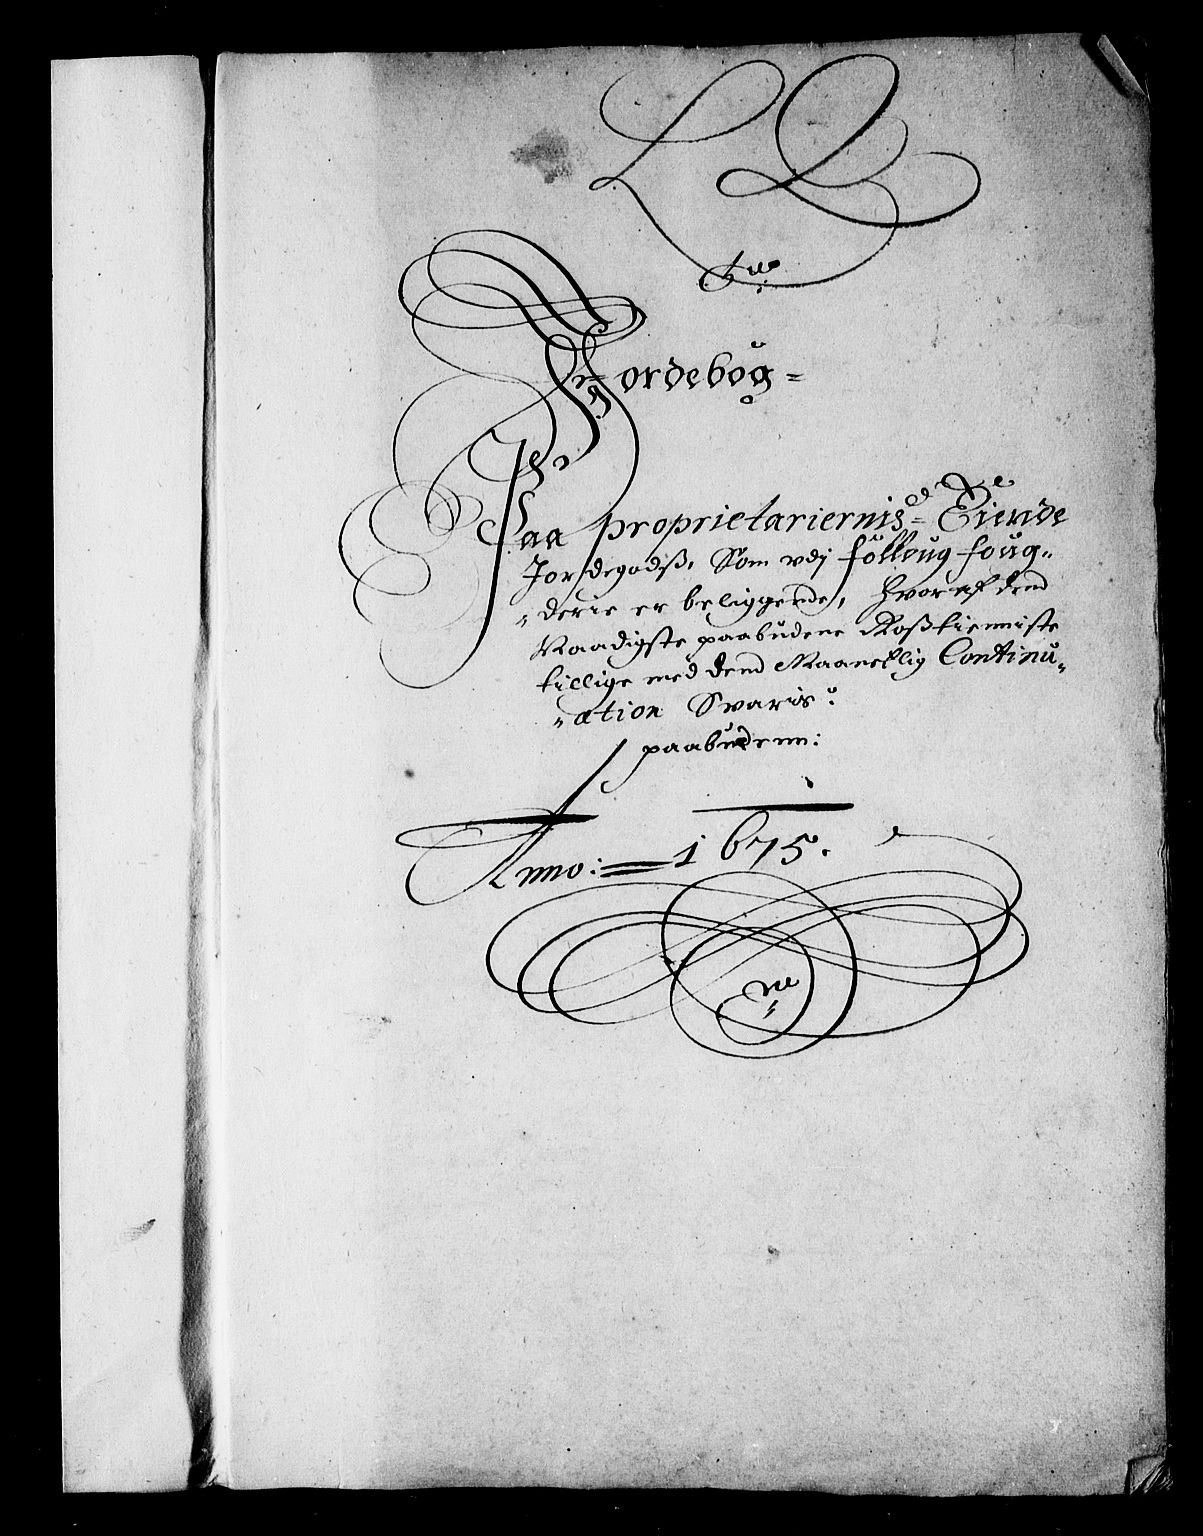 Jordebog =
Paa proprietariernis = Eiende
Jordegodtz, Som vdj folloug foug„
„derie er beliggende, hvoraf dend
Naadigste paabudene Rosztienniste
tillige med dend Maanetlig Continu„
„ation Svaris
paabudenn:
Anno: = 1675.